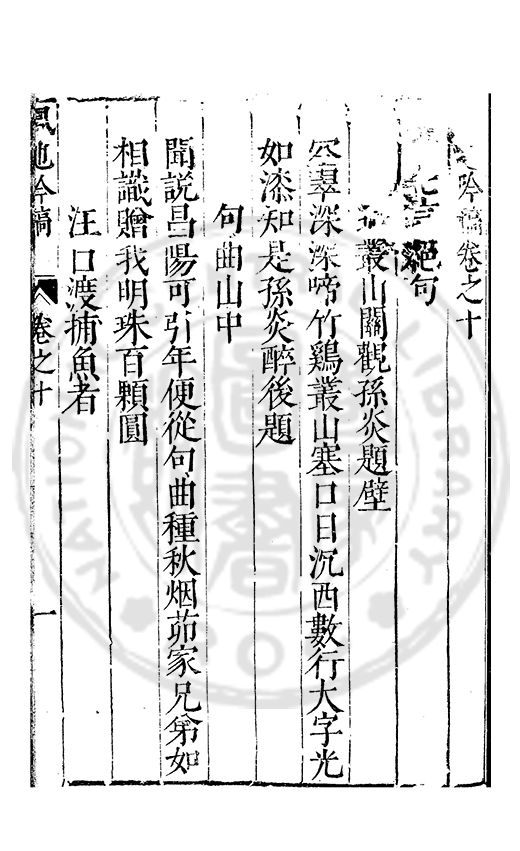 吟稿卷之十
言絕句
叢山關觀孫炎題壁
空翠深深啼竹鷄叢山塞口日沉西數行大字光
如漆知是孫炎醉後題
句曲山中
聞說昌陽可引年便從句曲種秋烟茆家兄弟如
相識贈我明珠百顆圓
汪口渡捕魚者
鳳池吟稿
卷之十
一
LIBRARY